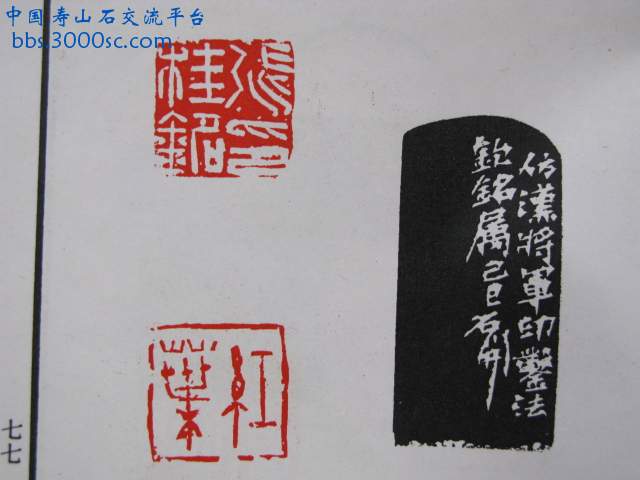 中国寿山石交流平台
bbs.3000sc.com
張桂銘印
仿漢將軍印鑿法
銘屬己巳石開
紅葉
七七